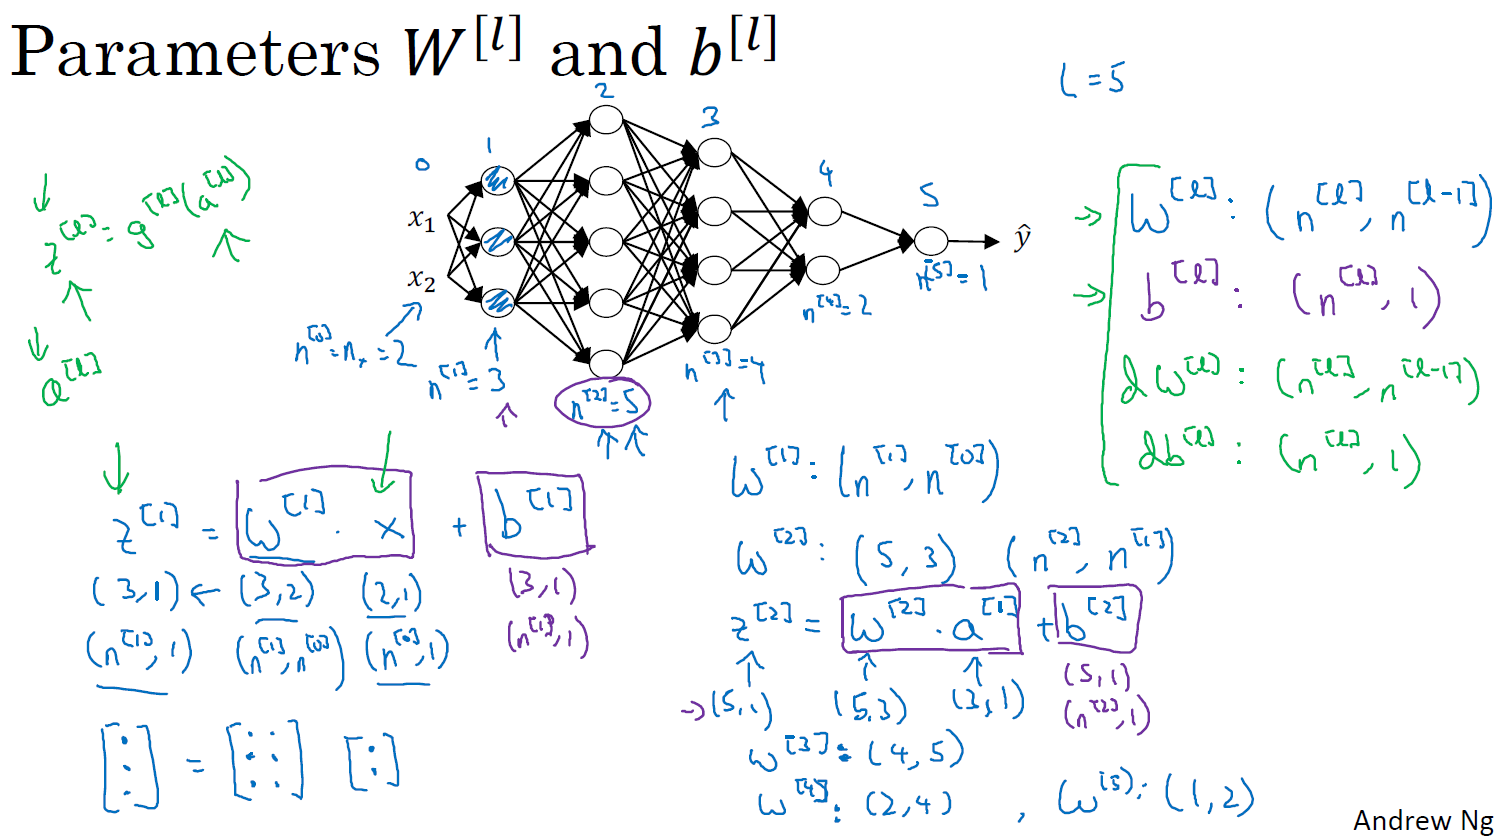 Parameters W^[l] and b^[l]
L = 5
0
1
2
3
4
5
x₁
x₂
ŷ
n^[0] = n_x = 2
n^[1] = 3
n^[2] = 5
n^[3] = 4
n^[4] = 2
n^[5] = 1
z^[l] = g^[l](a^[l])
a^[l]
→ W^[l] : (n^[l], n^[l-1])
→ b^[l] : (n^[l], 1)
dW^[l] : (n^[l], n^[l-1])
db^[l] : (n^[l], 1)
z^[1] = W^[1] · x + b^[1]
(3,1) ← (3,2) (2,1) (3,1)
(n^[1], 1) (n^[1], n^[0]) (n^[0], 1) (n^[1], 1)
[⋮] = [⋮ ⋮] [:]
W^[1] : (n^[1], n^[0])
W^[2] : (5, 3) (n^[2], n^[1])
z^[2] = W^[2] · a^[1] + b^[2]
→ (5,1) (5,3) (3,1) (5,1)
(n^[2], 1)
W^[3] : (4, 5)
W^[4] : (2, 4) , W^[5] : (1, 2)
Andrew Ng